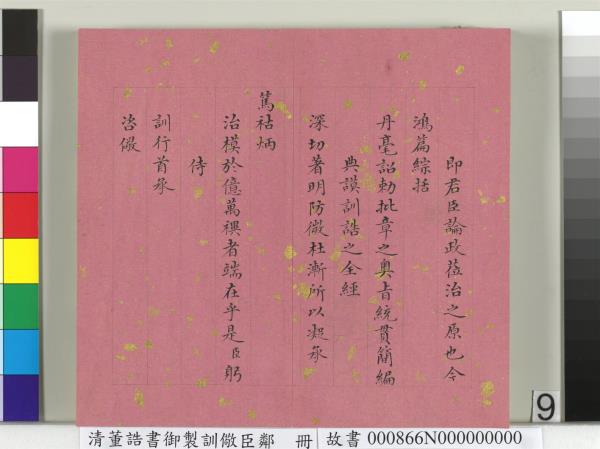 即君臣論政蒞治之原也今
鴻篇綜括
丹毫詔勅批章之奧旨統貫簡編
典謨訓誥之全經
深切著明防微杜漸所以凝承
篤祜炳
治模於億萬禩者端在乎是臣躬
侍
訓行首承
咨儆
9
清董誥書御製訓儆臣鄰 冊
故書 000866N000000000